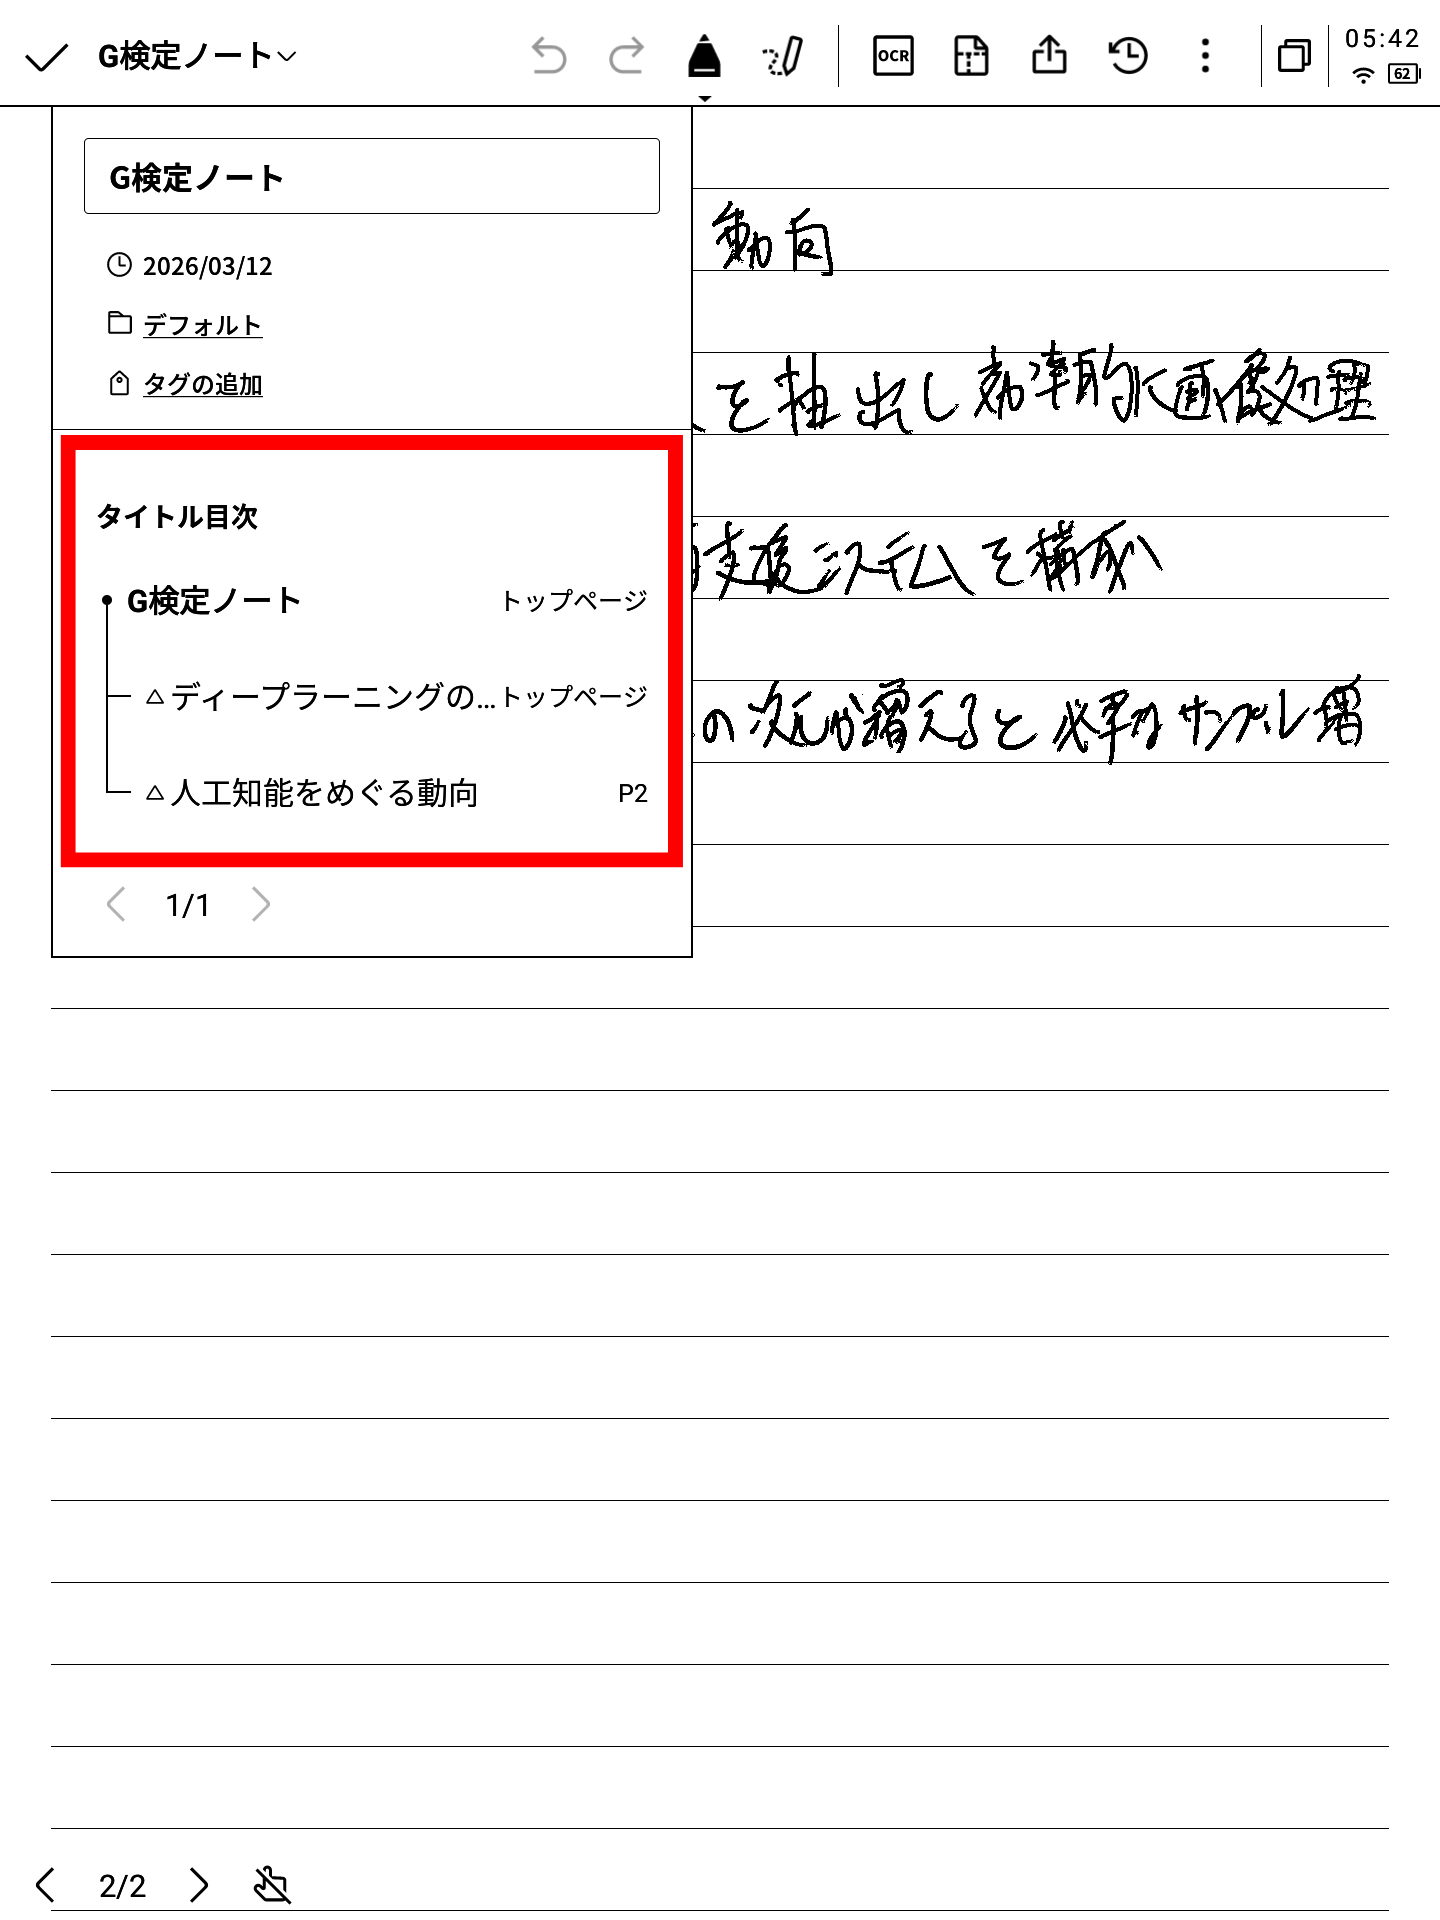 G検定ノート
OCR
05:42
62
G検定ノート
2026/03/12
デフォルト
タグの追加
タイトル目次
G検定ノート トップページ
△ ディープラーニングの... トップページ
△ 人工知能をめぐる動向 P2
1/1
動向
を抽出し効率的に画像処理
支援システムを構成
の次元が増えると必要なサンプル増
2/2